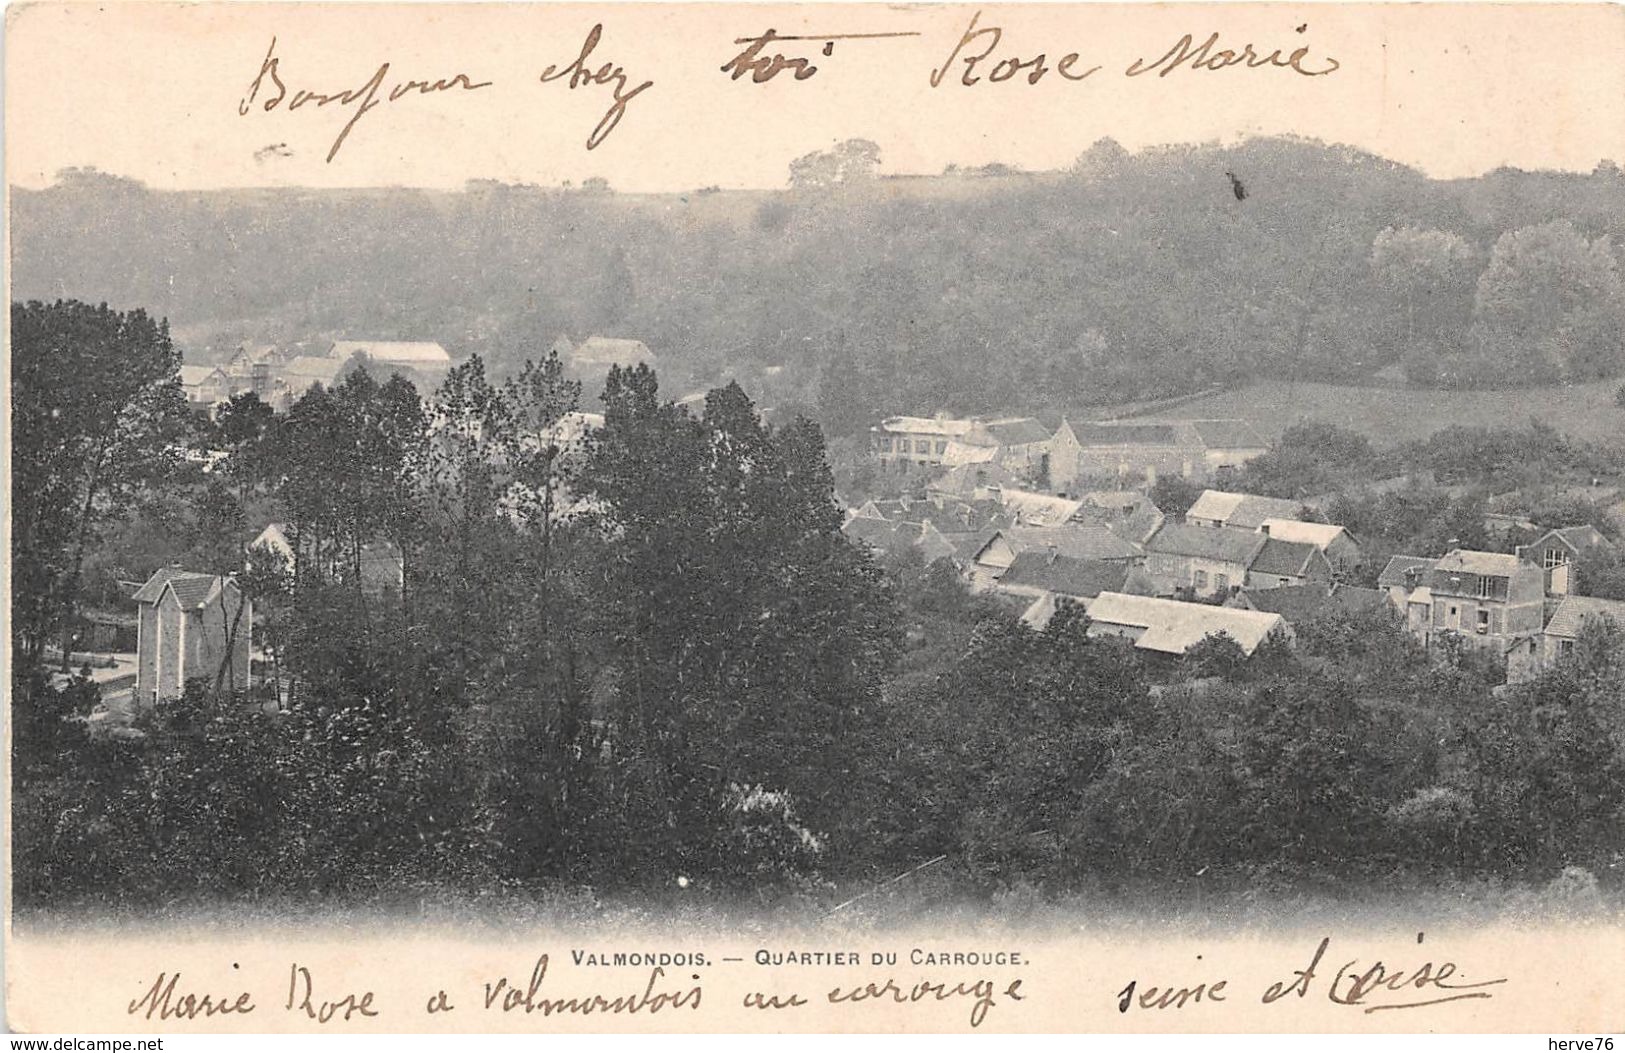 Bonjour chez toi Rose Marie
VALMONDOIS. — QUARTIER DU CARROUGE.
Marie Rose a Valmondois au carouge seine et Goise
www.delcampe.net
herve76